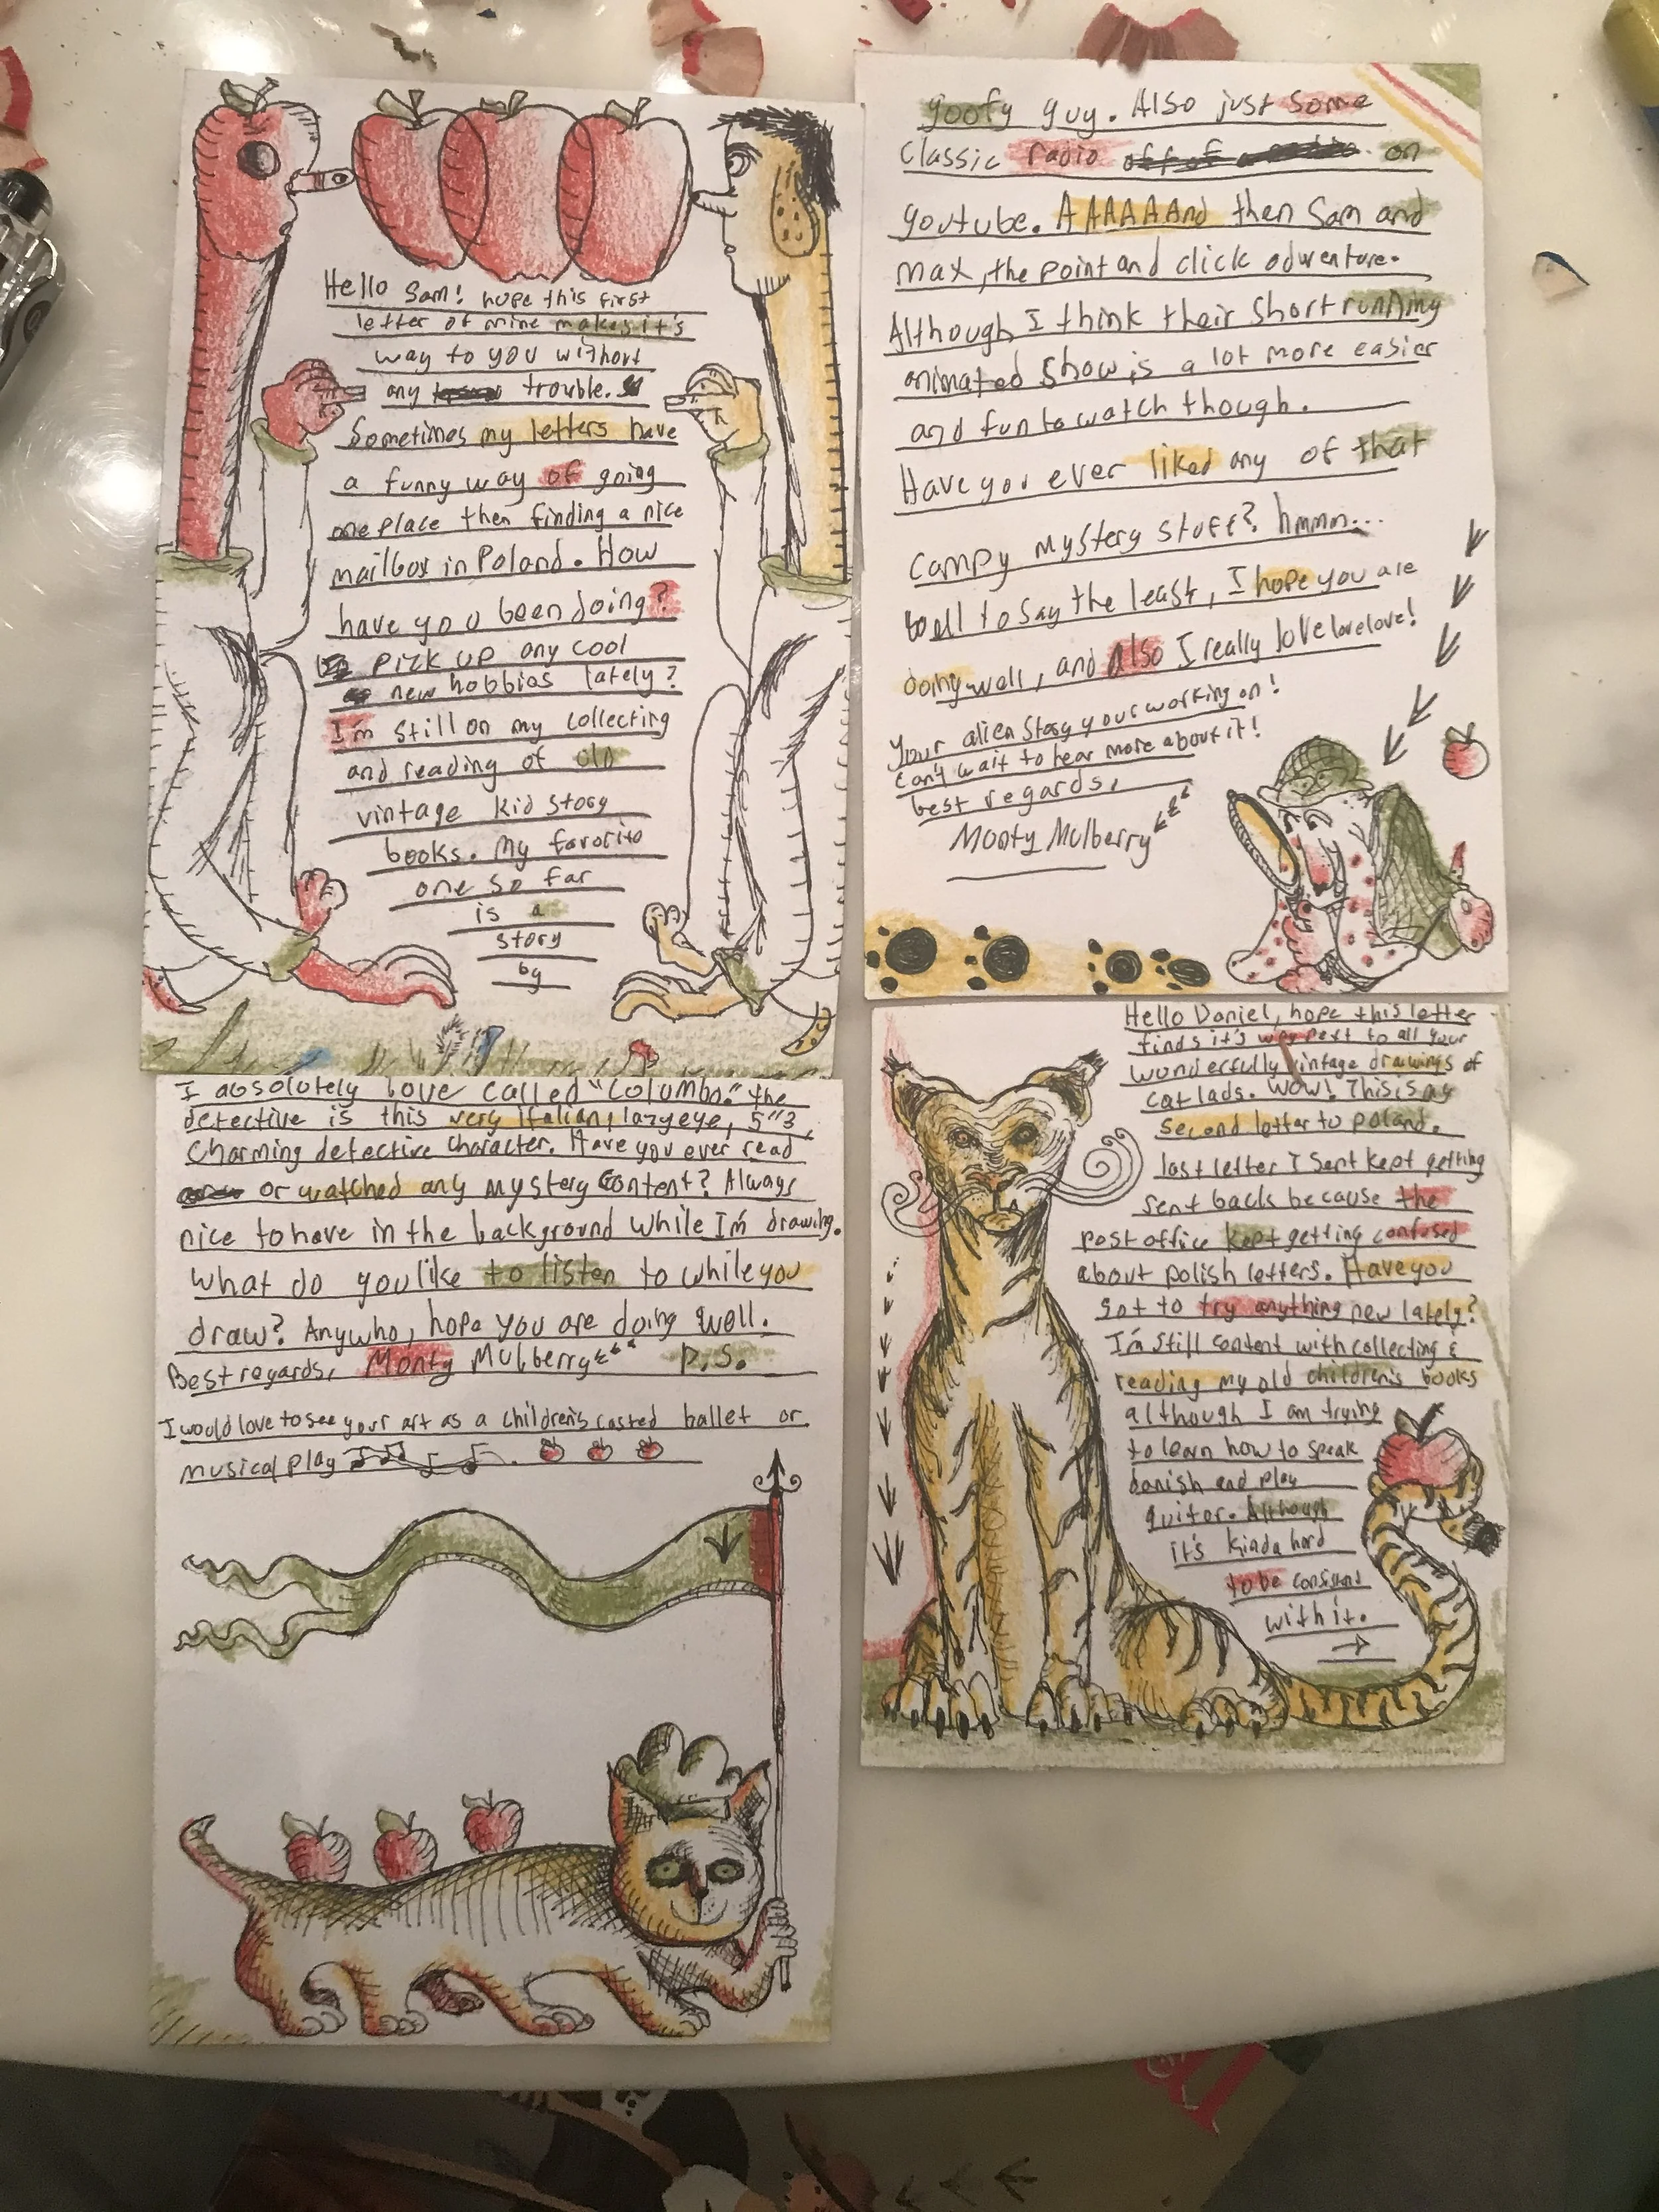 Hello Sam! hope this first
letter of mine makes it's
way to you without
any trouble.
Sometimes my letters have
a funny way of going
one place then finding a nice
mailbox in Poland. How
have you been doing?
pick up any cool
new hobbies lately?
I'm still on my collecting
and reading of old
vintage kid story
books. My favorite
one so far
is a
story
by
goofy guy. Also just some
Classic radio on
youtube. AAAAAAnd then Sam and
max, the point and click adventure.
Although I think their short running
animated show is a lot more easier
and fun to watch though.
Have you ever liked any of that
campy mystery stuff? hmmm...
well to say the least, I hope you are
doing well, and also I really love lovelove!
Your alien story your working on!
can't wait to hear more about it!
best regards,
Monty Mulberry
I absolutely love called "Columbo." the
detective is this very Italian, lazy eye, 5"3,
Charming detective character. Have you ever read
or watched any mystery content? Always
nice to have in the background while I'm drawing.
What do you like to listen to while you
draw? Anywho, hope you are doing well.
Best regards, Monty Mulberry P.S.
I would love to see your art as a children's casted ballet or
musical play
Hello Daniel, hope this letter
finds it's way to all your
wonderfully vintage drawings of
cat lads. Wow! This is my
second letter to poland.
last letter I sent kept getting
sent back because the
post office kept getting confused
about polish letters. Have you
got to try anything new lately?
I'm still content with collecting &
reading my old children's books
although I am trying
to learn how to speak
danish and play
guitar. Although
it's kinda hard
to be consisent
with it.